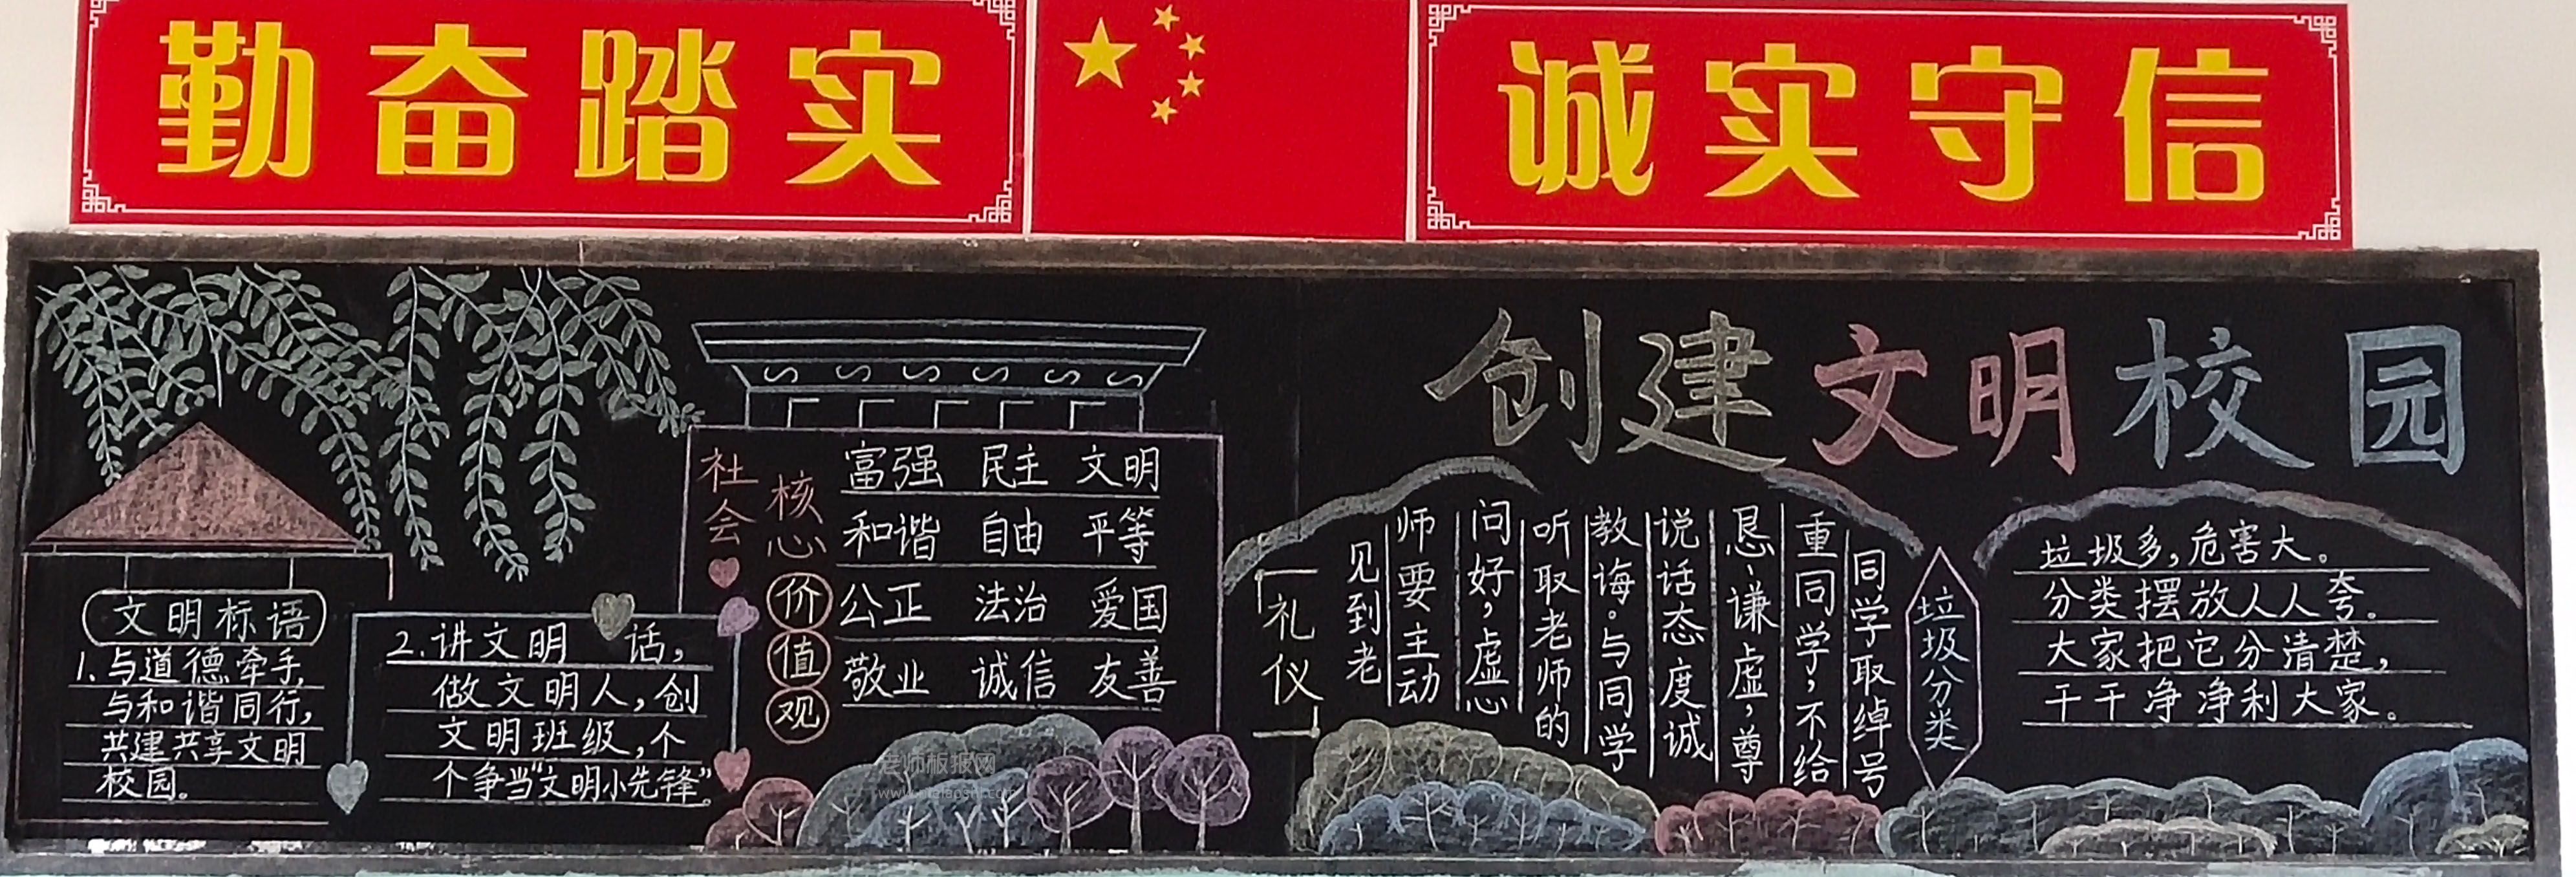 勤奋踏实
诚实守信
创建文明校园
文明标语
1.与道德牵手,
与和谐同行,
共建共享文明
校园。
2.讲文明 话,
做文明人,创
文明班级,个
个争当“文明小先锋”。
社会
核心
价值观
富强 民主 文明
和谐 自由 平等
公正 法治 爱国
敬业 诚信 友善
礼仪
见到老
师要主动
问好,虚心
听取老师的
教诲。与同学
说话态度诚
恳、谦虚,尊
重同学,不给
同学取绰号
垃圾分类
垃圾多,危害大。
分类摆放人人夸。
大家把它分清楚,
干干净净利大家。
老师板报网